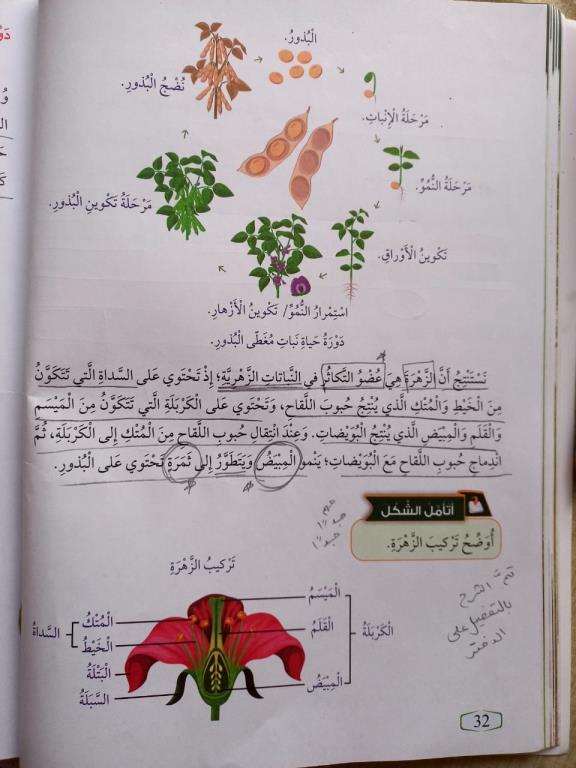 الْبُذورُ.
نُضْجُ الْبُذورِ.
مَرْحَلَةُ الْإِنْباتِ.
مَرْحَلَةُ النُّمُوِّ.
مَرْحَلَةُ تَكْوينِ الْبُذورِ.
تَكْوينُ الْأَوْراقِ.
اسْتِمْرارُ النُّمُوِّ/ تَكْوينُ الْأَزْهارِ.
دَوْرَةُ حَياةِ نَباتٍ مُغَطّى الْبُذورِ.
نَسْتَنْتِجُ أَنَّ الزَّهْرَةَ هِيَ عُضْوُ التَّكاثُرِ في النَّباتاتِ الزَّهْرِيَّةِ؛ إِذْ تَحْتَوي عَلى السَّداةِ الَّتي تَتَكَوَّنُ
مِنَ الْخَيْطِ وَالْمُتْكِ الَّذي يُنْتِجُ حُبوبَ اللَّقاحِ، وَتَحْتَوي عَلى الْكَرْبَلَةِ الَّتي تَتَكَوَّنُ مِنَ الْمَيْسَمِ
وَالْقَلَمِ وَالْمِبْيَضِ الَّذي يُنْتِجُ الْبُوَيْضاتِ. وَعِنْدَ انْتِقالِ حُبوبِ اللَّقاحِ مِنَ الْمُتْكِ إِلى الْكَرْبَلَةِ، ثُمَّ
انْدِماجِ حُبوبِ اللَّقاحِ مَعَ الْبُوَيْضاتِ؛ يَنْمو الْمِبْيَضُ وَيَتَطَوَّرُ إِلى ثَمَرَةٍ تَحْتَوي عَلى الْبُذورِ.
أَتَأَمَّلُ الشَّكْلَ
أُوَضِّحُ تَرْكيبَ الزَّهْرَةِ.
مهم
جداً
جداً
تمَّ الشرح
بالتفصيل على
الدفتر
تَرْكيبُ الزَّهْرَةِ
الْمَيْسَمُ
الْقَلَمُ
الْمِبْيَضُ
الْكَرْبَلَةُ
الْمُتْكُ
الْخَيْطُ
السَّداةُ
الْبَتَلَةُ
السَّبَلَةُ
32